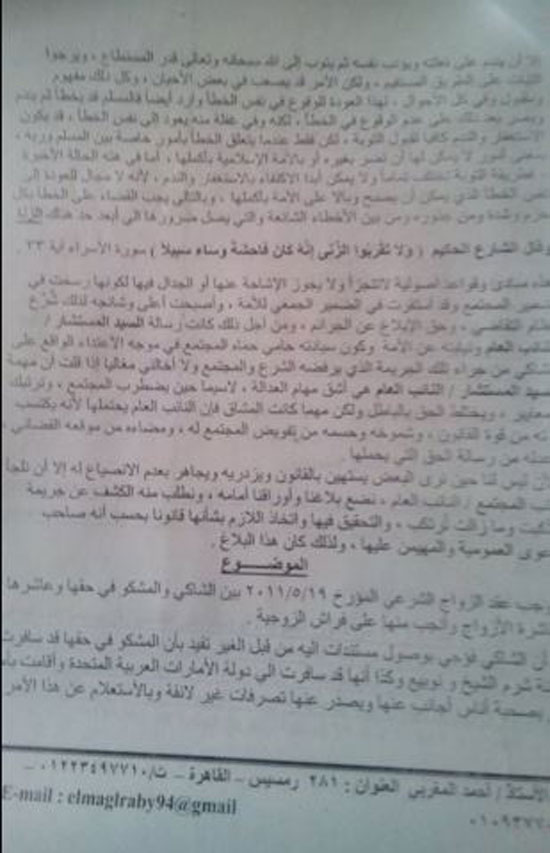 إلا أن يندم على فعلته ويؤنب نفسه ثم يتوب إلى الله سبحانه وتعالى قدر المستطاع ، ويرجوا
الثبات على الطريق المستقيم ، ولكن الأمر قد يصعب في بعض الأحيان ، وكل ذلك مفهوم
ومقبول وفي كل الأحوال ، لهذا العودة للوقوع في نفس الخطأ وارد أيضا فالمسلم قد يخطأ ثم يندم
ويصر بعد ذلك على عدم الوقوع في الخطأ ، لكنه وفي غفلة منه يعود إلى نفس الخطأ ، قد يكون
الاستغفار والندم كافيا لقبول التوبة ، لكن فقط عندما يتعلق الخطأ بأمور خاصة بين المسلم وربه ،
أمور لا يمكن لها أن تضر بغيره أو بالأمة الإسلامية بأكملها ، أما في هذه الحالة الأخيرة
التوبة تختلف تماما ولا يمكن أبدا الاكتفاء بالاستغفار والندم ، لأنه لا مجال للعودة إلى
نفس الخطأ الذي يمكن أن يصبح وبالا على الأمة بأكملها ، وبالتالي يجب القضاء على الخطأ بكل
حزم وشدة ومن جذوره ومن بين الأخطاء الشائعة والتي يصل ضررها الى أبعد حد هناك الزنا
وقال الشارع الحكيم ( وَلَا تَقْرَبُوا الزِّنَى إِنَّهُ كَانَ فَاحِشَةً وَسَاءَ سَبِيلًا ) سورة الأسراء آية ٣٢ .
هذه مبادئ وقواعد أصولية لاتتجزأ ولا يجوز الإشاحة عنها أو الجدال فيها لكونها رسخت في
ضمير المجتمع وقد أستقرت في الضمير الجمعي للأمة ، وأصبحت أعلى وشائجه لذلك شُرِّع
التقاضي ، وحق الإبلاغ عن الجرائم ، ومن أجل ذلك كانت رسالة السيد المستشار /
النائب العام ونيابته عن الأمة وكون سيادته حامي حماه المجتمع في موجه الأعتداء الواقع على
الشاكي من جراء تلك الجريمة الذي يرفضه الشرع والمجتمع ولا أخالني مغاليا إذا قلت أن مهمة
السيد المستشار / النائب العام هي أشق مهام العدالة ، لاسيما حين يضطرب المجتمع ، وترتبك
المعايير ، ويختلط الحق بالباطل ولكن مهما كانت المشاق فإن النائب العام يحتملها لأنه يكتسب
من قوة القانون ، وشموخه وحسمه من تفويض المجتمع له ، ومضاءه من موقعه القضائي ،
من رسالة الحق التي يحملها
ليس لنا حين نرى البعض يستهين بالقانون ويزدريه ويجاهر بعدم الانصياع له إلا أن نلجأ
المجتمع / النائب العام ، نضع بلاغنا وأوراقنا أمامه ، ونطلب منه الكشف عن جريمة
وما زالت ترتكب ، والتحقيق فيها وأتخاذ اللازم بشأنها قانونا بحسب أنه صاحب
الدعوى العمومية والمهيمن عليها ، ولذلك كان هذا البلاغ .
الموضــــوع
بموجب عقد الزواج الشرعي المؤرخ ٢٠١١/٥/١٩ بين الشاكي والمشكو في حقها وعاشرها
معاشرة الأزواج وأنجب منها على فراش الزوجية .
أن الشاكي فوجئ بوصول مستندات اليه من قبل الغير تفيد بأن المشكو في حقها قد سافرت
شرم الشيخ و نويبع وكذا أنها قد سافرت الى دولة الأمارات العربية المتحدة وأقامت
بصحبة أناس أجانب عنها ويصدر عنها تصرفات غير لائقة وبالأستعلام عن هذا الأمر
الأستاذ / أحمد المغربي العنوان : ٢٨١ رمسيس – القاهرة – ت/٠١٢٢٣٤٩٧٧١٠ –
٠١٠٩٣٧٧
E-mail : elmaglraby94@gmail